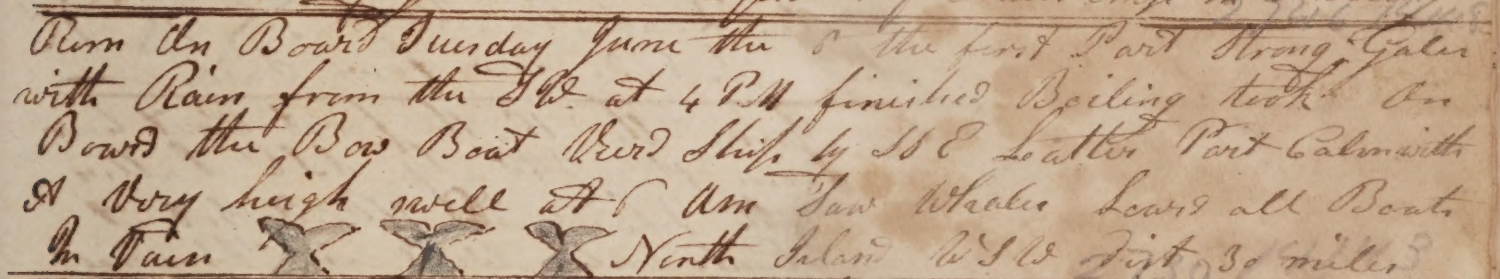 Rem On Board Tuesday June the 6 the first Part Strong Gales
with Rain from the SW at 4 PM finished Boiling took On
Board the Bow Boat Veerd Ship by SbE Latter Part Calm with
A Very heigh swell at 6 Am Saw Whales Lowrd all Boats
In Vain North Island WSW Dist 30 miles